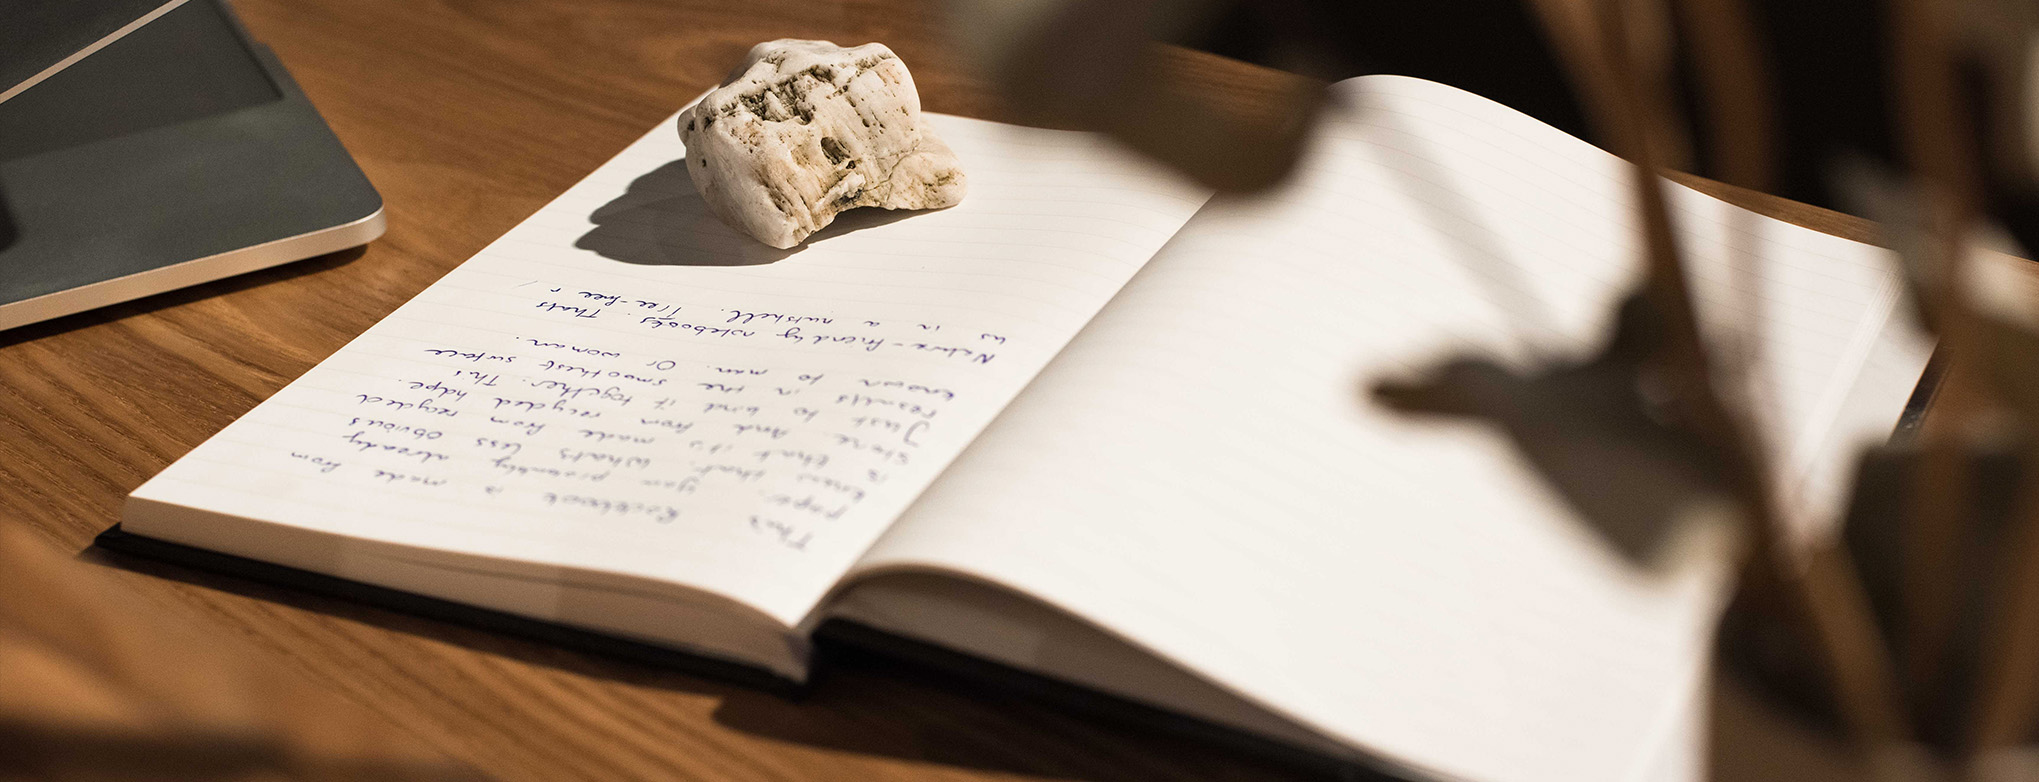 This Rockbook is made from
paper. you presumably already
know that. What's less obvious
is that it's made from recycled
stone. And from recycled hdpe.
Just to bind it together. This
results in the smoothest surface
known to man. Or woman.
Nature-friendly notebooks. That's
us in a nutshell. Tree-free